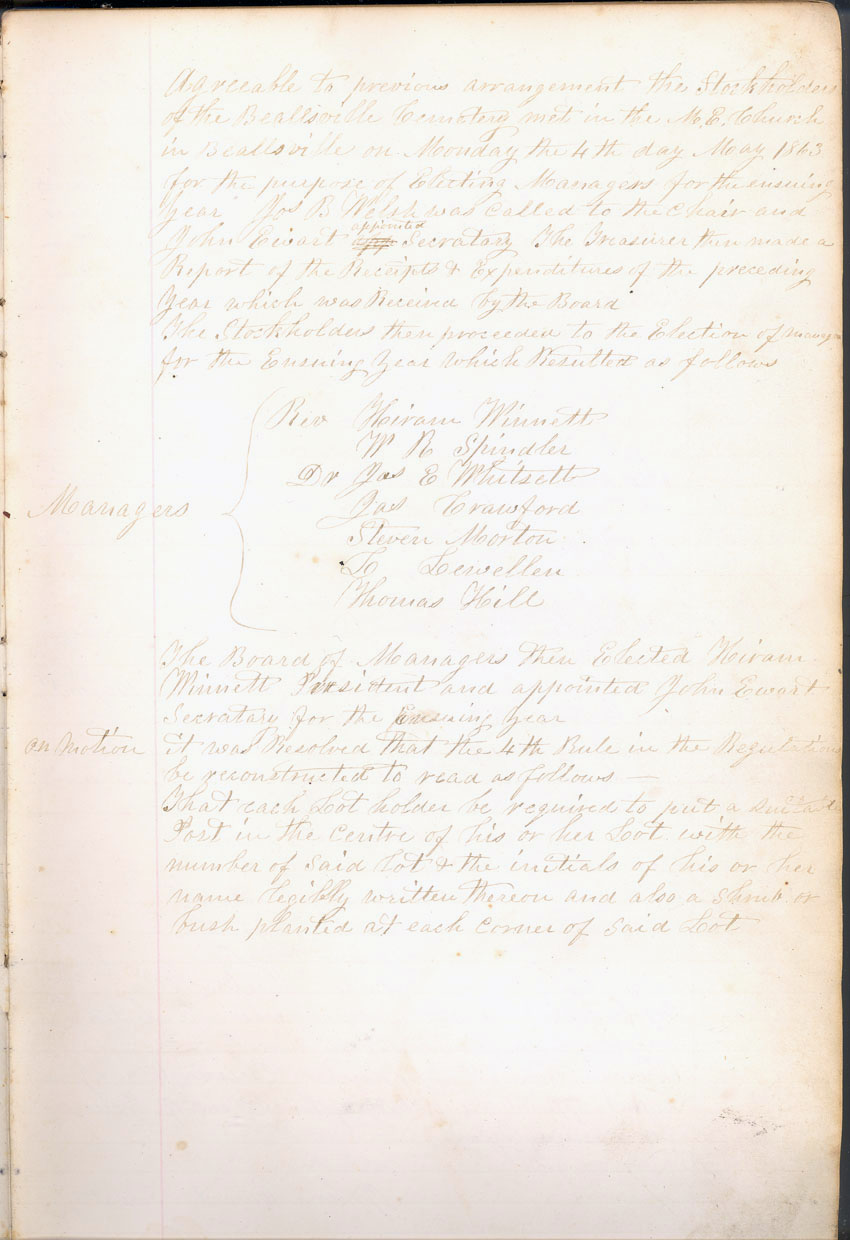 Agreeable to previous arrangement the Stockholders
of the Beallsville Cemetery met in the M. E. Church
in Beallsville on Monday the 4th day May 1863
for the purpose of Electing Managers for the ensuing
Year Jos B Welsh was called to the Chair and
appointed
John Ewart Secratary The Treasurer then made a
Report of the Receipts & Expenditures of the preceding
Year which was Received by the Board
The Stockholders then proceeded to the Election of
for the Ensuing Year which Resulted as follows
Rev Hiram Winnett
W R Spindler
Dr Jas E Whitsett
Managers Jas Crawford
Steven Morton
L Lewellen
Thomas Hill
The Board of Managers then Elected Hiram
Winnett President and appointed John Ewart
Secratary for the Ensuing year
on motion it was Resolved that the 4th Rule in the Regulations
be reconstructed to read as follows —
That each Lot holder be required to put a
Post in the Centre of his or her Lot with the
number of Said Lot & the initials of his or her
name legibly written thereon and also a Shrub or
bush planted at each Corner of Said Lot